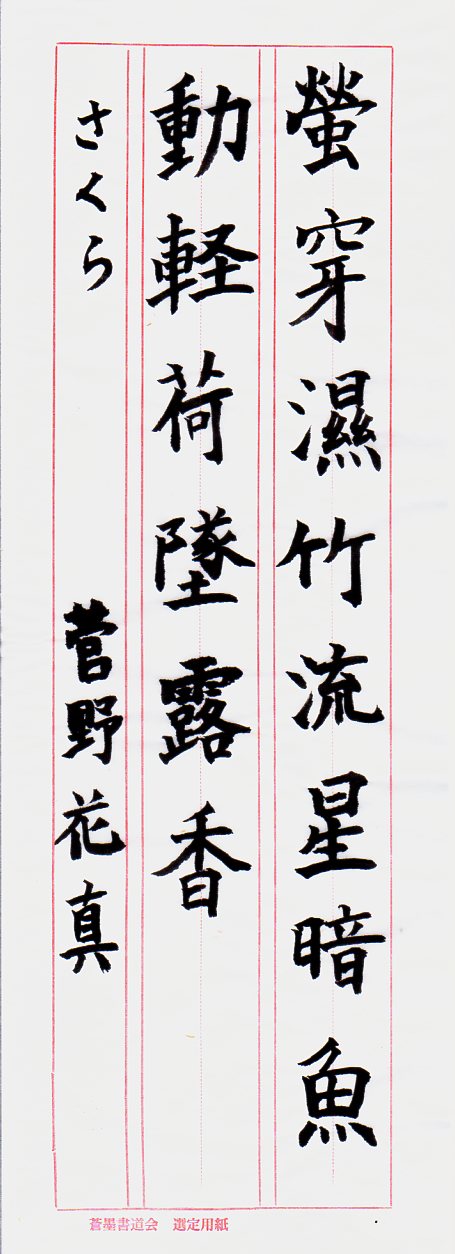 螢穿濕竹流星暗魚
動軽荷墜露香
さくら 菅野花真
蒼墨書道会 選定用紙